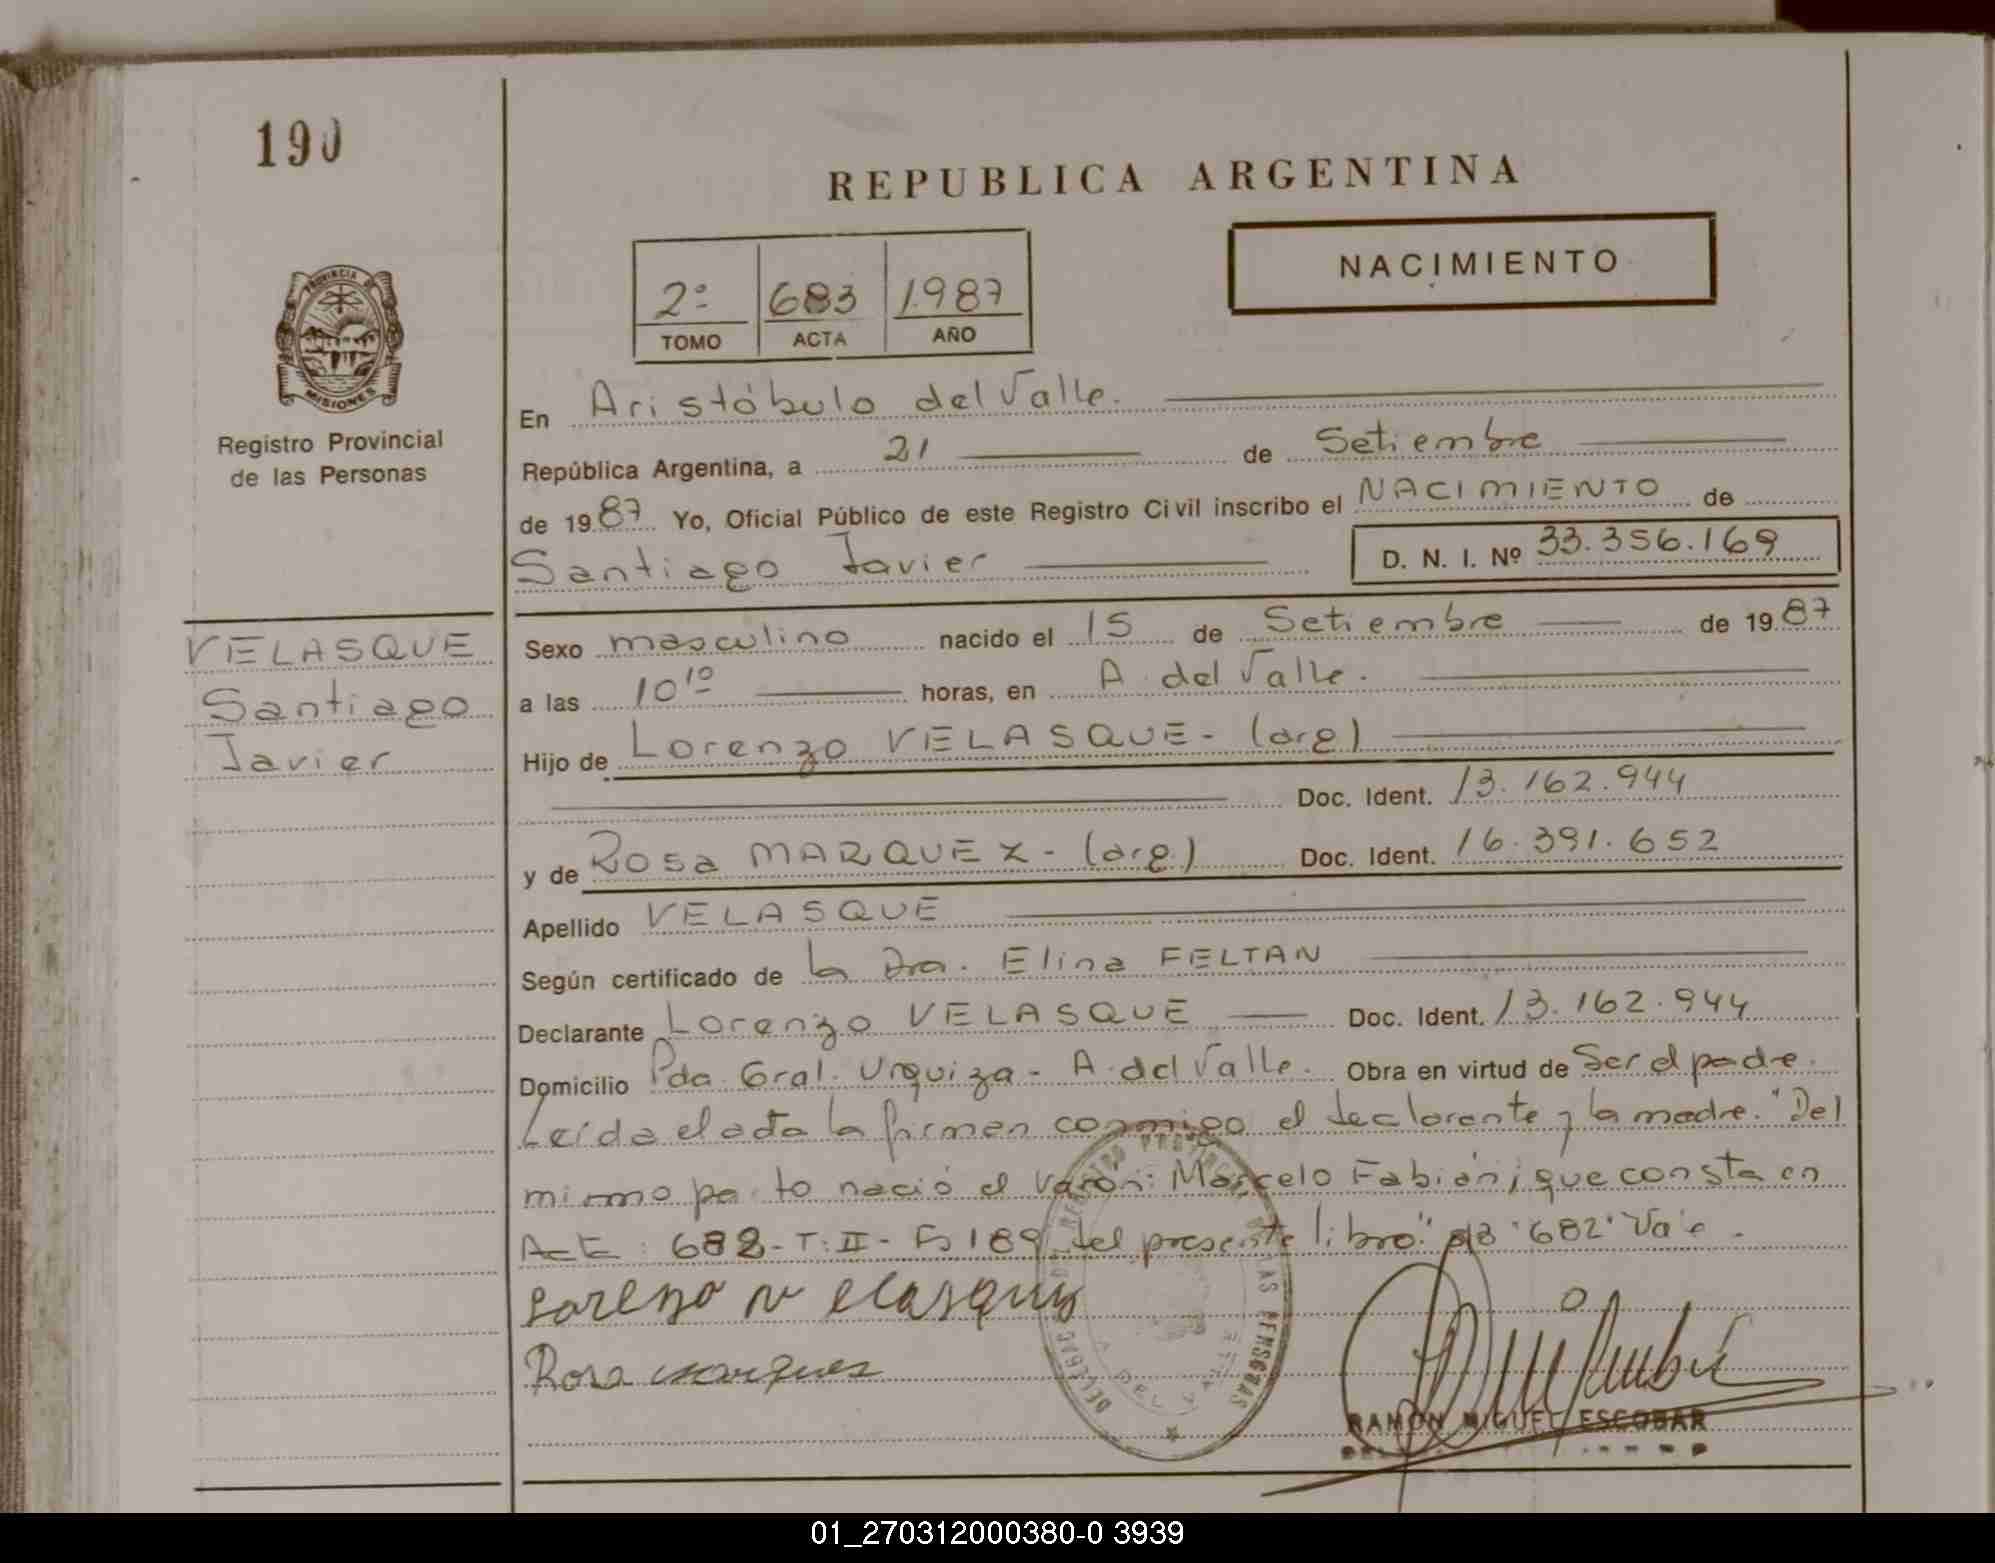 190
REPUBLICA ARGENTINA
NACIMIENTO
2º 683 1.987
TOMO ACTA AÑO
PROVINCIA D
MISIONES
Registro Provincial
de las Personas
En Aristóbulo del Valle.
República Argentina, a 21 de Setiembre
de 1987 Yo, Oficial Público de este Registro Civil inscribo el NACIMIENTO de
Santiago Javier D. N. I. Nº 33.356.169
VELASQUE
Santiago
Javier
Sexo masculino nacido el 15 de Setiembre de 1987
a las 10¹⁰ horas, en A. del Valle.
Hijo de Lorenzo VELASQUE - (arg)
Doc. Ident. 13.162.944
y de Rosa MARQUEZ - (arg.) Doc. Ident. 16.391.652
Apellido VELASQUE
Según certificado de la Dra. Elina FELTAN
Declarante Lorenzo VELASQUE Doc. Ident. 13.162.944
Domicilio Pda. Gral. Urquiza - A. del Valle. Obra en virtud de Ser el padre.
Leída el acta la firman conmigo el declarante y la madre. "Del
mismo parto nació el varón: Marcelo Fabián; que consta en
Act: 682 - T: II - Fº 189 del presente libro" "682" Vale.
Lorenzo Velasque
Rosa Marques
RAMON MIGUEL ESCOBAR
01_270312000380-0 3939